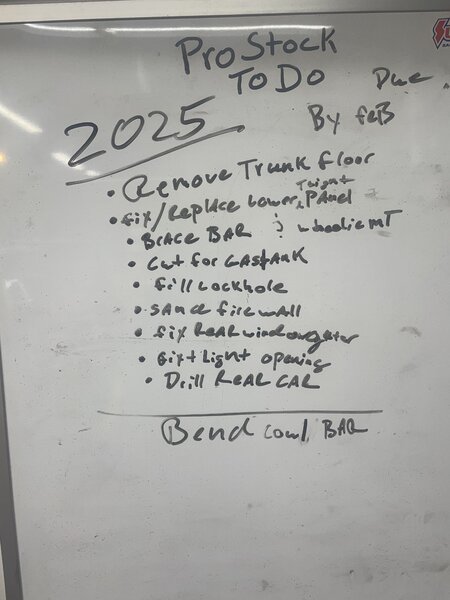 Pro Stock
To Do
Due
2025
By feB
• Remove Trunk floor
• fix/Replace Lower Panel
• Brace BAR & wheelie mT
• Cut for GAStANK
• fill Lockhole
• SAnd firewall
• fix Rear window
• fix t Light opening
• Drill Rear CAR
Bend cowl BAR